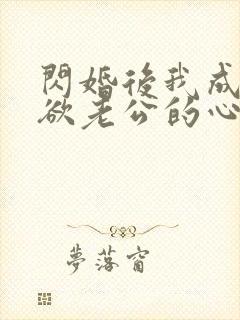 閃婚後我成
欲老公的心
夢落窗